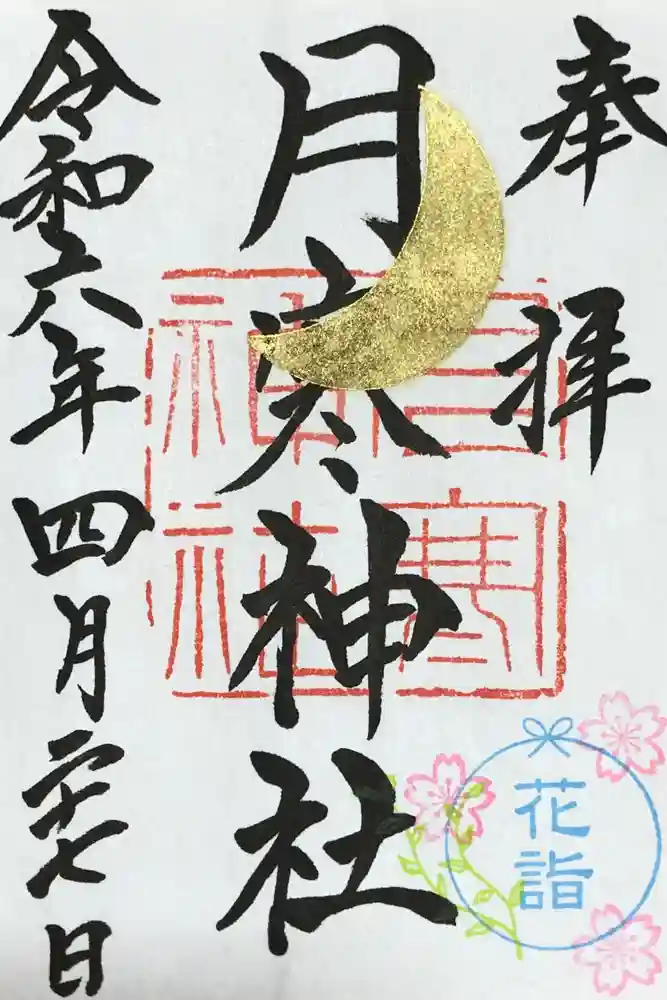 奉拝
月寒神社
令和六年四月二十七日
月寒神社
花詣